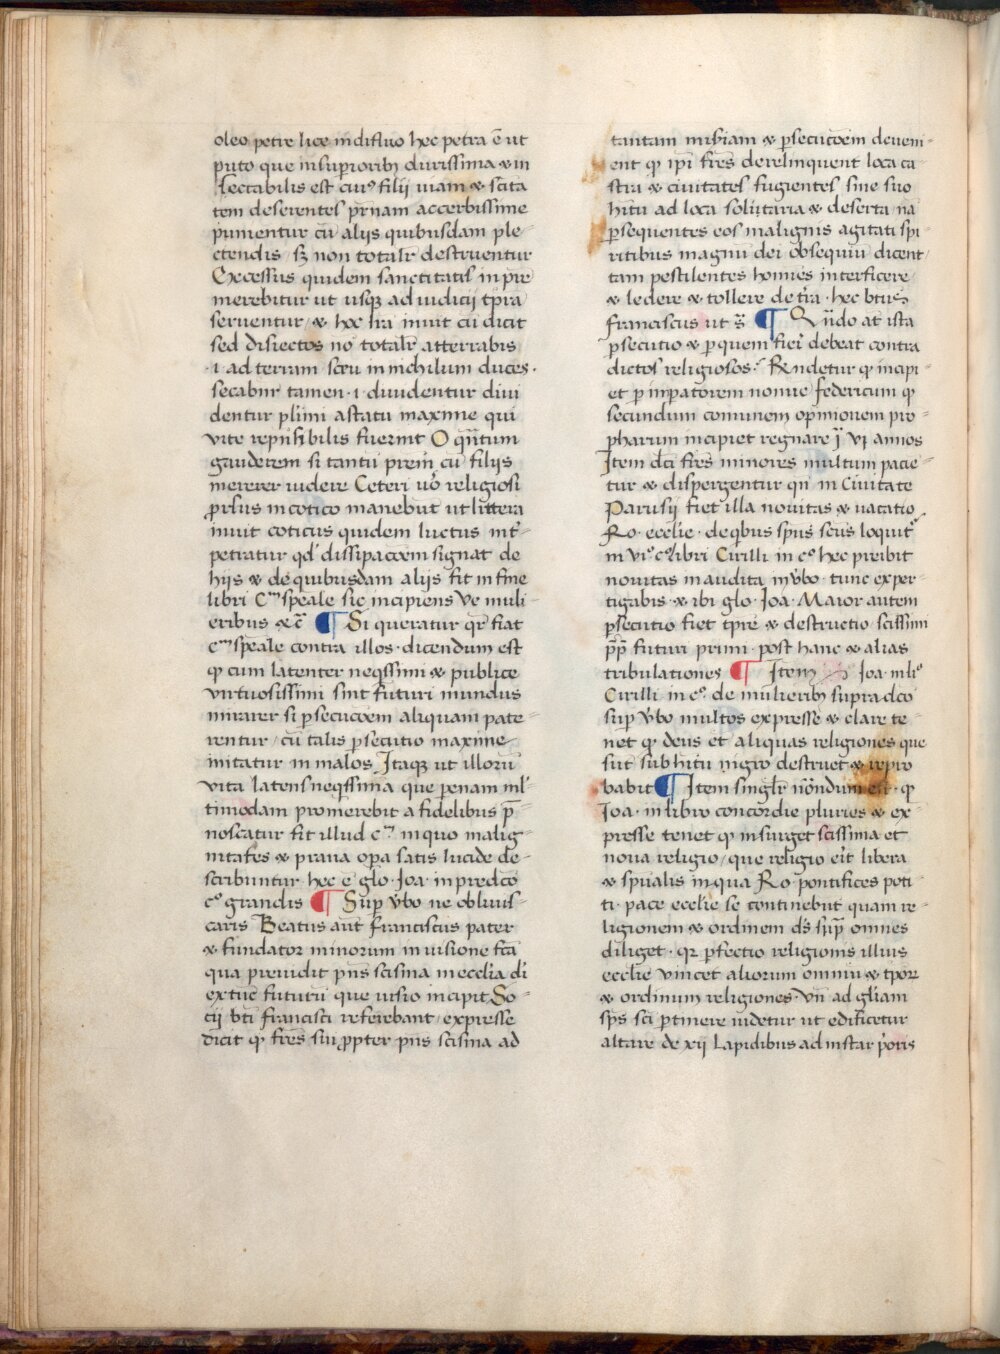 oleo petre licet indifluo hec petra ē ut
puto que insuperioribꝫ durissima ⁊ in
sectabilis est cuiꝰ filij uiam ⁊ scītа
tem deserentes prīnam accerbissime
punientur cū alijs quibusdam ple-
ctendis sꝫ non totalr̄ destruentur
Excessus quidem sanctitatis in pre
merebitur ut usqꝫ ad iudicij tp̄ra
seruentur ⁊ hoc lr̄a inuit cū dicit
sed disiectos nō totalr̄ atterrabis
·i· ad terram seu in nichilum duces·
secabūr tamen ·i· diuidentur diui
dentur plīmi a statu maxime qui
vite rep̄hsibilis fuerint O qn̄tum
gauderem si tantū prem̄ cū filijs
mererer uidere Ceteri uō religiosi
prorsus in cotico manebūt ut littera
inuit coticus quidem luctus int̄-
petratur qd' dissipacōem signat de
hijs ⁊ de quibusdam alijs fit in fine
libri Cᵐ spēale sic incipiens Ve muli-
eribus ⁊c̄ ¶ Si queratur qr̄ fiat
cᵐ spēale contra illos · dicendum est
ꝙ cum latenter neqssimi ⁊ publice
virtuosissimi sint futuri mundus
mirarer si ꝑsecucōem aliquam pate-
rentur / cū talis ꝑsecutio maxime
imitatur in malos Itaqꝫ ut illorū
vita latens neqssima que penam ml̄-
timodam promerebit a fidelibus p̄-
noscatur fit illud cᵐ in quo malig-
nitates ⁊ praua oꝑa satis lucide de-
scribuntur hec ē glo· Joa· in predc̄o
c° grandis ¶ Suꝑ v̄bo ne obliuis-
caris Beatus aut̄ franciscus pater
⁊ fundator minorum in uisione fc̄a
qua preuidit pn̄s scisma in ecclīa di
ex tūc futurū que uisio incipit So-
cij bt̄i francisci referebant / expresse
dicit ꝙ fr̄es sui ꝓpter pn̄s scisma ad
tantam mis̄iam ⁊ ꝑsecucōem deueni-
ent ꝙ ip̄i fr̄es derelinquent loca ca-
stra ⁊ ciuitates fugientes sine suo
hitu ad loca solitaria ⁊ deserta nā
ꝑsequentes eos malignis agitati spi-
ritibus magnū dei obsequiū dicent
tam pestilentes hom̄ies interficere
⁊ ledere ⁊ tollere de t̄ra · hec bt̄us
franciscus ut s̄ ¶ Qn̄do at ista
ꝑsecutio ⁊ ꝑ quem fieri debeat contra
dictos religiosos · Rn̄detur ꝙ incipi-
et ꝑ inꝑatorem nomīe federicum ꝙ
secundum comunem opinionem pro-
pharum incipiet regnare ī vj annos
Item dc̄i fr̄es minores multum pacie-
tur ⁊ dispergentur qn̄ in Ciuitate
Parusij fiet illa nouitas ⁊ uacatio
Ro· ecclīe · de qbus sp̄us sc̄us loquit᷑
in vi° c° libri Cirilli in c° hec p̄eibit
nouitas inaudita in v̄bo · tunc exper-
tigabis · ⁊ ibi glo· Joa· Maior autem
ꝑsecutio fiet tp̄re ⁊ destructio scissim
pp̄ futuri primi · post hanc ⁊ alias
tribulationes ¶ Item Joa· in li°
Cirilli in c° de mulieribꝫ supradc̄o
suꝑ v̄bo multos expresse ⁊ clare te-
net ꝙ deus et aliquas religiones que
sūt sub hitu nigro destruet ⁊ repro
babit ¶ Item singl̄r nōndum est · ꝙ
Joa· in libro concordie pluries ⁊ ex-
presse tenet ꝙ insurget sc̄issima et
noua religio / que religio erit libera
⁊ sp̄ualis in qua Ro· pontifices poti-
ti · pace ecclīe se continebūt quam re-
ligionem ⁊ ordinem d̄s suꝑ omnes
diliget · qr ꝑfectio religionis illius
ecclīe vincet aliorum omniū ⁊ tp̄oꝝ
⁊ ordinum religiones · Vn̄ ad gl̄iam
sp̄s sc̄i ꝑtinere uidetur ut edificetur
altare de xij lapidibus ad instar p̄oris